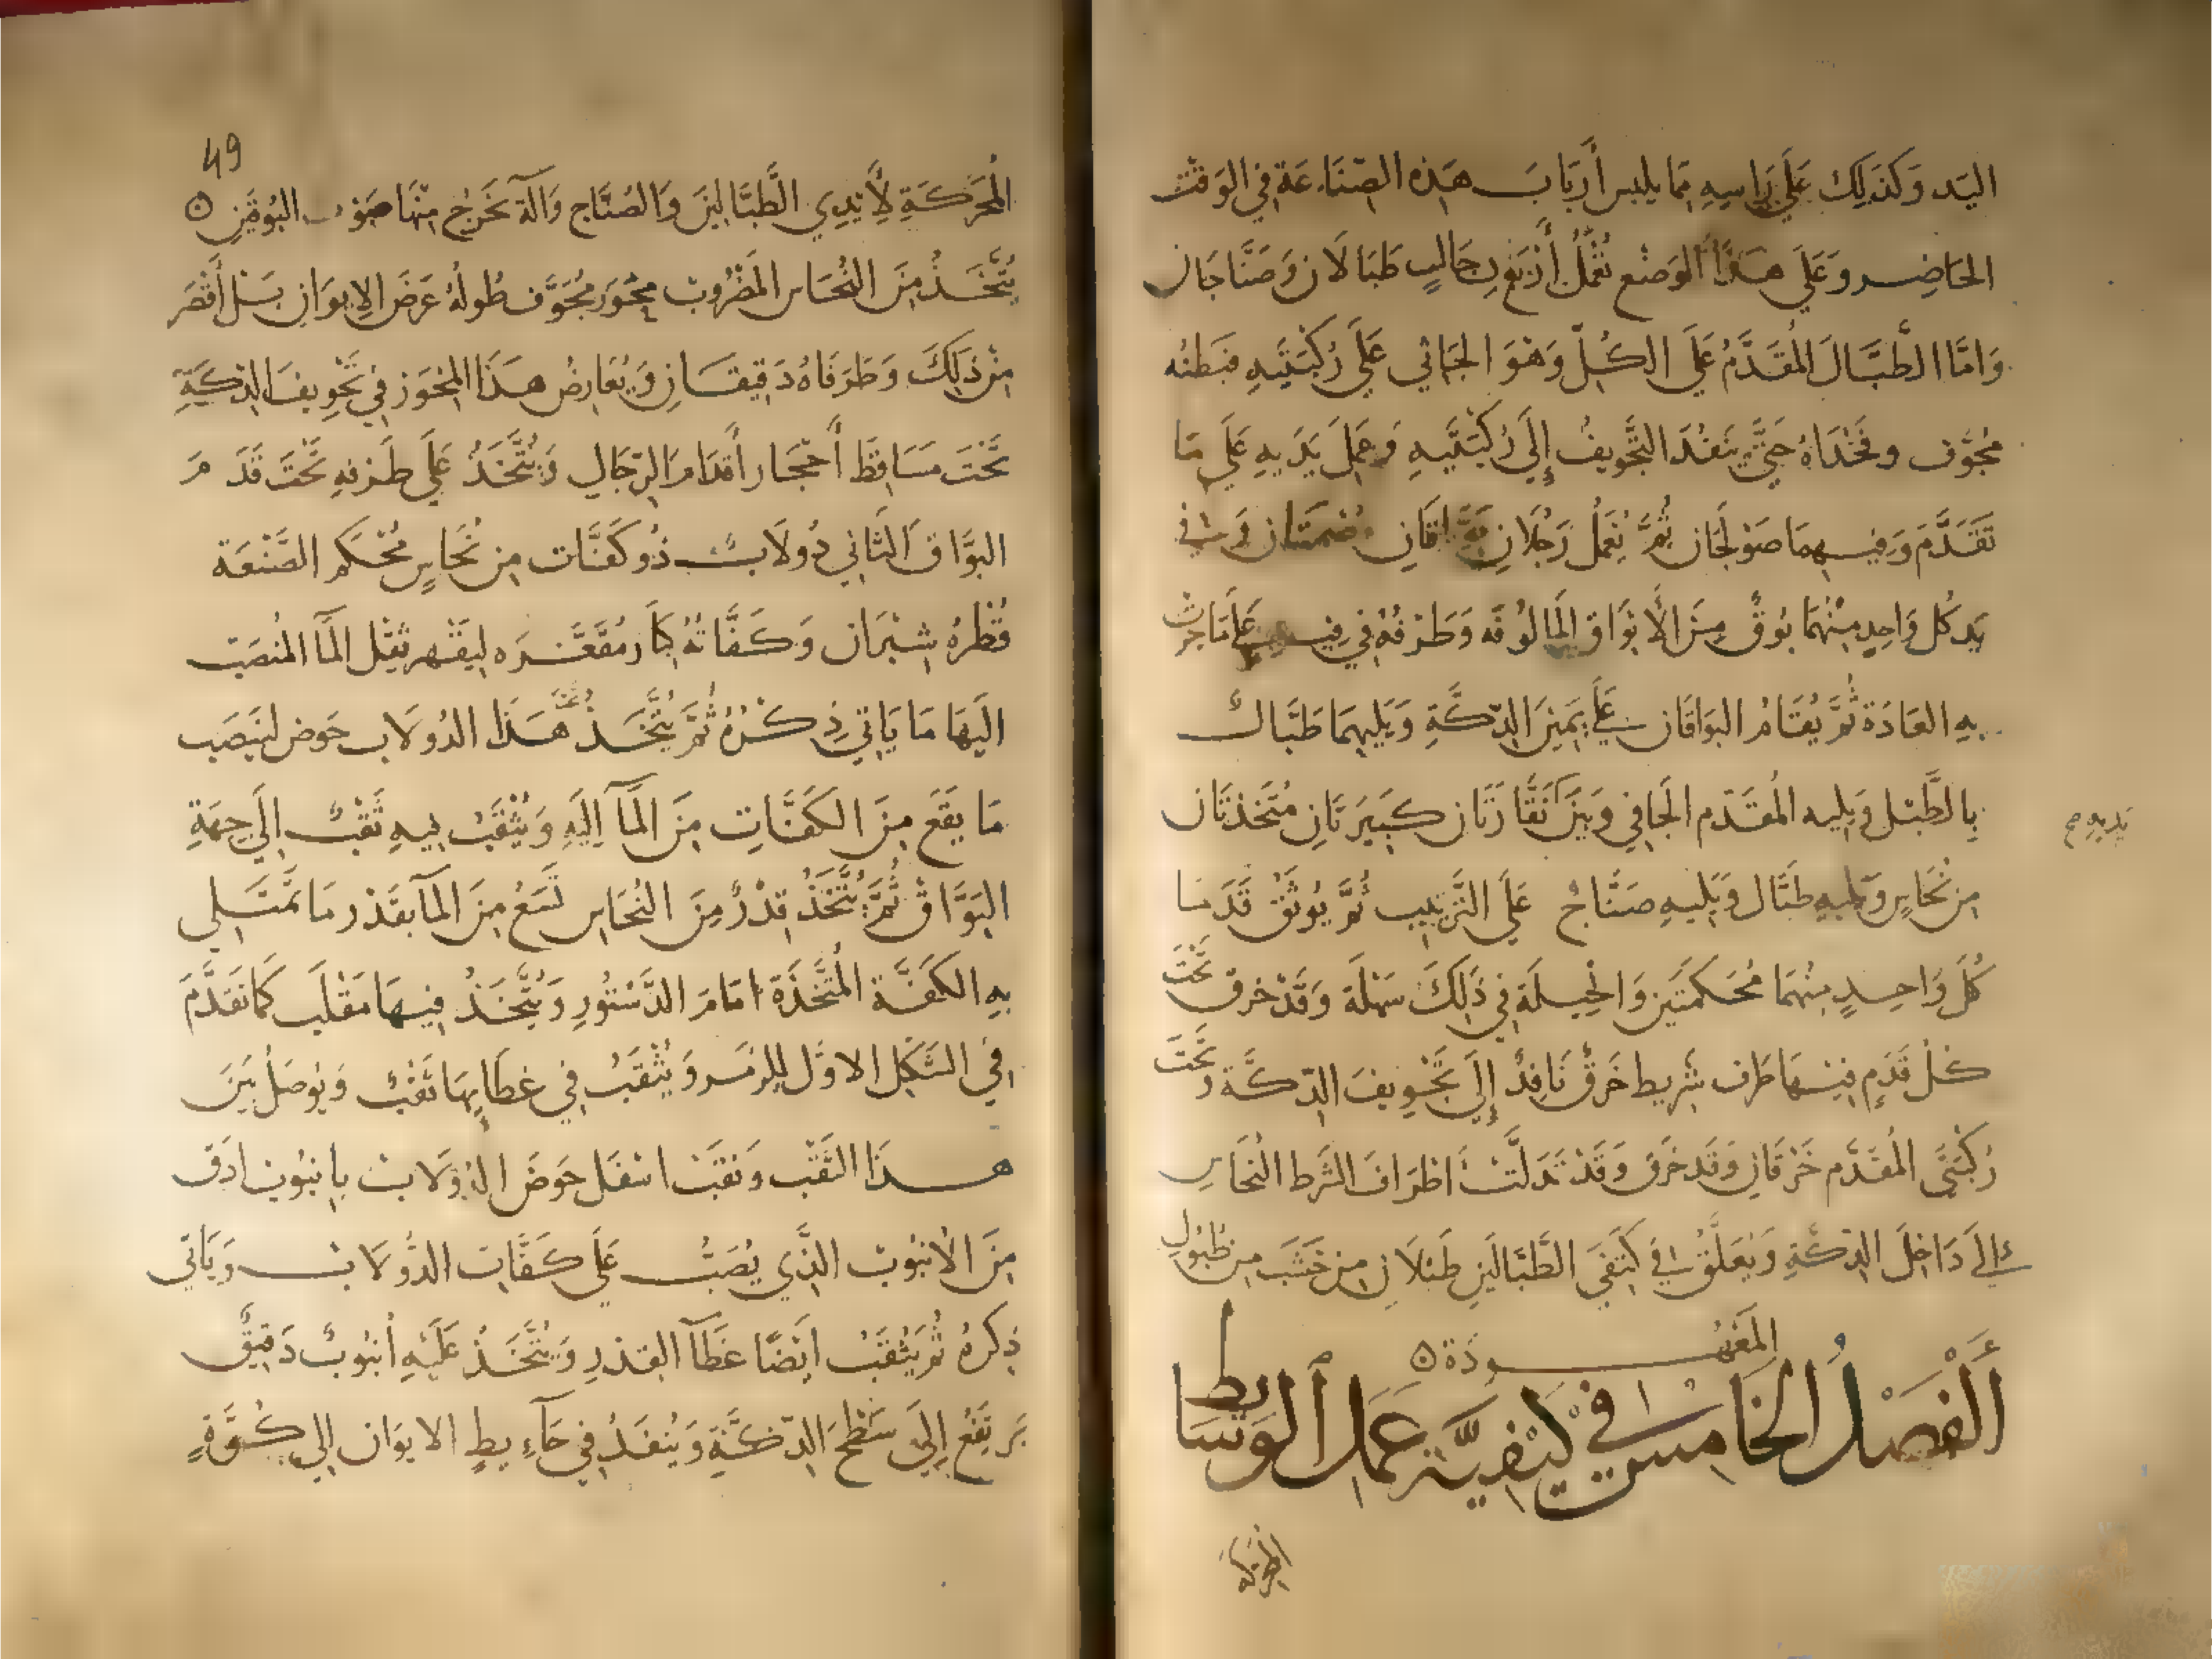 اليَد وَكَذَلِكَ عَلَى رَاسِهِ مِمَّا يلبس أَرْبَابَ هَذِه الصِّنَاعَة فِي الوَقْت
الحَاضِر وَعَلَى هَذَا الوَضْع تُعْمَلُ أَرْبَعِ رِجَالٍ طَبَّالَان وَصَنَّاجَان
وَامَّا الطَّبَّالَ المُقَدَّمُ عَلَى الكُلِّ وَهْوَ الجَاثي عَلَى رُكْبَتَيهِ فبَطنُه
مُجَوَّف وفَخْدَاهُ حَتَّى يَنفُدَ التَّجْوِيفُ إِلَى رُكْبَتَيهِ وَعَمَلَ يَدَيهِ عَلَى مَا
تَقَدَّمَ وَفِيهِمَا صَوْلَجَان ثُمَّ يُعْمَلُ رَجُلَانِ بَوَّاقَانِ مُصْمَتَان فِي
يَد كُل وَاحِدٍ مِنْهُمَا بُوقٌ مِنَ الأَبْوَاقِ المَالُوفَه وَطَرْفُهُ فِي فِيه عَلَى مَا جَرَت
بِهِ العَادَة ثُمَّ يُقَامُ البَوَاقَان عَلَى يَمِينَ الدِّكَّةِ وَيَلِيهِمَا طَبَّالٌ
بِالطَّبْل وَيلِيه المُقَدَّم الجَاثِي وَبَيْنَ نَقَّارَتَان كَبِيرَتَانِ مُتَّخَذتَان
يَدَيهِ صح
مِن نُحَاسٍ وَيَلِيهِ طبَّال وَيَلِيهِ صَنَّاجٌ عَلَى التَّرْتِيبِ ثُمَّ يُوثَقُ قَدَمَا
كُلّ وَاحِدٍ مِنْهُمَا مُحْكَمَتَين وَالحِيلَة فِي ذَلِكَ سَهْلَة وَقَدْ خرق تَحْتَ
كُلّ قَدَمٍ فِيهَا طَرف شَرِيط خَرقٌ نَافِدٌ إِلَى تَجْوِيفَ الدِّكَّة وتَحْتَ
رُكْبَتَي المُقَدَّم خَرْقَانِ وَقَد خَرَق وَقَدْ تَدَلَّتْ أَطْرَافَ الشَّرط النُحَاسِ
إِلَى دَاخِلَ الدِّكَّةِ وَيُعَلَّقُ فِي كَتِفَي الطَّبَّالَين طَبْلَانِ مِن خَشَب مِن طُبُولِ
المَعْهُودَة ۞
أَلْفَصْلُ الخَامِسُ فِي كَيْفِيَّة عَمَل الوَسَايط
المحركة
49
المُحَرِّكَةِ لِأَيْدِي الطَّبَّالِينَ وَالصُنَّاج وَآلَة تَخْرُج مِنْهَا صَوْت البُوقَينِ ۞
يُتَّخَذُ مِنَ النُّحَاس المَضْرُوب مِحْوَر مُجَوَّف طُولُهُ عَرَضَ الايوَانِ بَلْ أَقْصَر
مِنْ ذَلِكَ وَطَرَفَاهُ دَقِيقَانِ وَيُعَارِضُ هَذَا المِحْوَر فِي تَجْوِيفَ الدِّكَّةِ
تَحْتَ مَسَاقِطَ أَحْجَار أَقْدَامَ الرِّجَالِ وَيُتَّخَذُ عَلَى طَرْفهِ تَحْتَ قَدَم
البَوَّاقَ الثَانِي دُولَابٌ ذُو كَفَّات مِن نُحَاسٍ مُحْكَم الصَّنْعَة
قُطْرهُ شِبْرَان وَكَفَّاتُهُ كِبَار مُقَعَّرَه لِيَقْهر ثِقْل المَآ المُنصَبّ
الَيهَا مَا يَاتِي ذِكْرُهُ ثُمَّ يُتَّخَذُ تَحْتَ هَذَا الدُولَاب حَوض لِيَصَبّ
مَا يَقَع مِنَ الكَفَّاتِ مِنَ المَآ اِلَيهِ وَيُثْقَبُ فِيهِ ثَقْبٌ إِلَى جِهَةِ
البَوَّاقْ ثُمَّ يُتَّخَذُ قِدْرٌ مِنَ النُحَاسِ تَسَعُ مِنَ المَآ بقَدْر مَا تَمْتَلي
بِهِ الكَفَّة المُتَّخَذَة امَامَ الدَّسْتُور وَيُتَّخَذُ فِيهَا مَقْلَب كَمَا تَقَدَّمَ
فِي الشَكْل الاوَّل لِلزَّمر وَيُثْقَبُ فِي غِطَايهَا ثَقْبٌ وَيُوصَلُ بَيْنَ
هَذَا الثَّقْب وَثَقْبَ اسْفَل حَوضَ الدُولَاب بِانبُوبٍ ادَق
مِنَ الأُنْبُوب الَّذِي يُصَبُّ عَلَى كَفَّات الدُّولَاب وَيَاتِي
ذِكرُهُ ثُمَّ يُثْقَبُ ايْضًا غِطَآ القِدْرِ وَيُتَّخَذُ عَلَيْهِ أُنْبُوبٌ دَقِيقٌ
يَرتَفِعُ إِلَى سَطْحَ الدِّكَّةِ وَيُنفَدُ فِي حَآءِيطِ الايوَان إِلى كُوَّةٍ